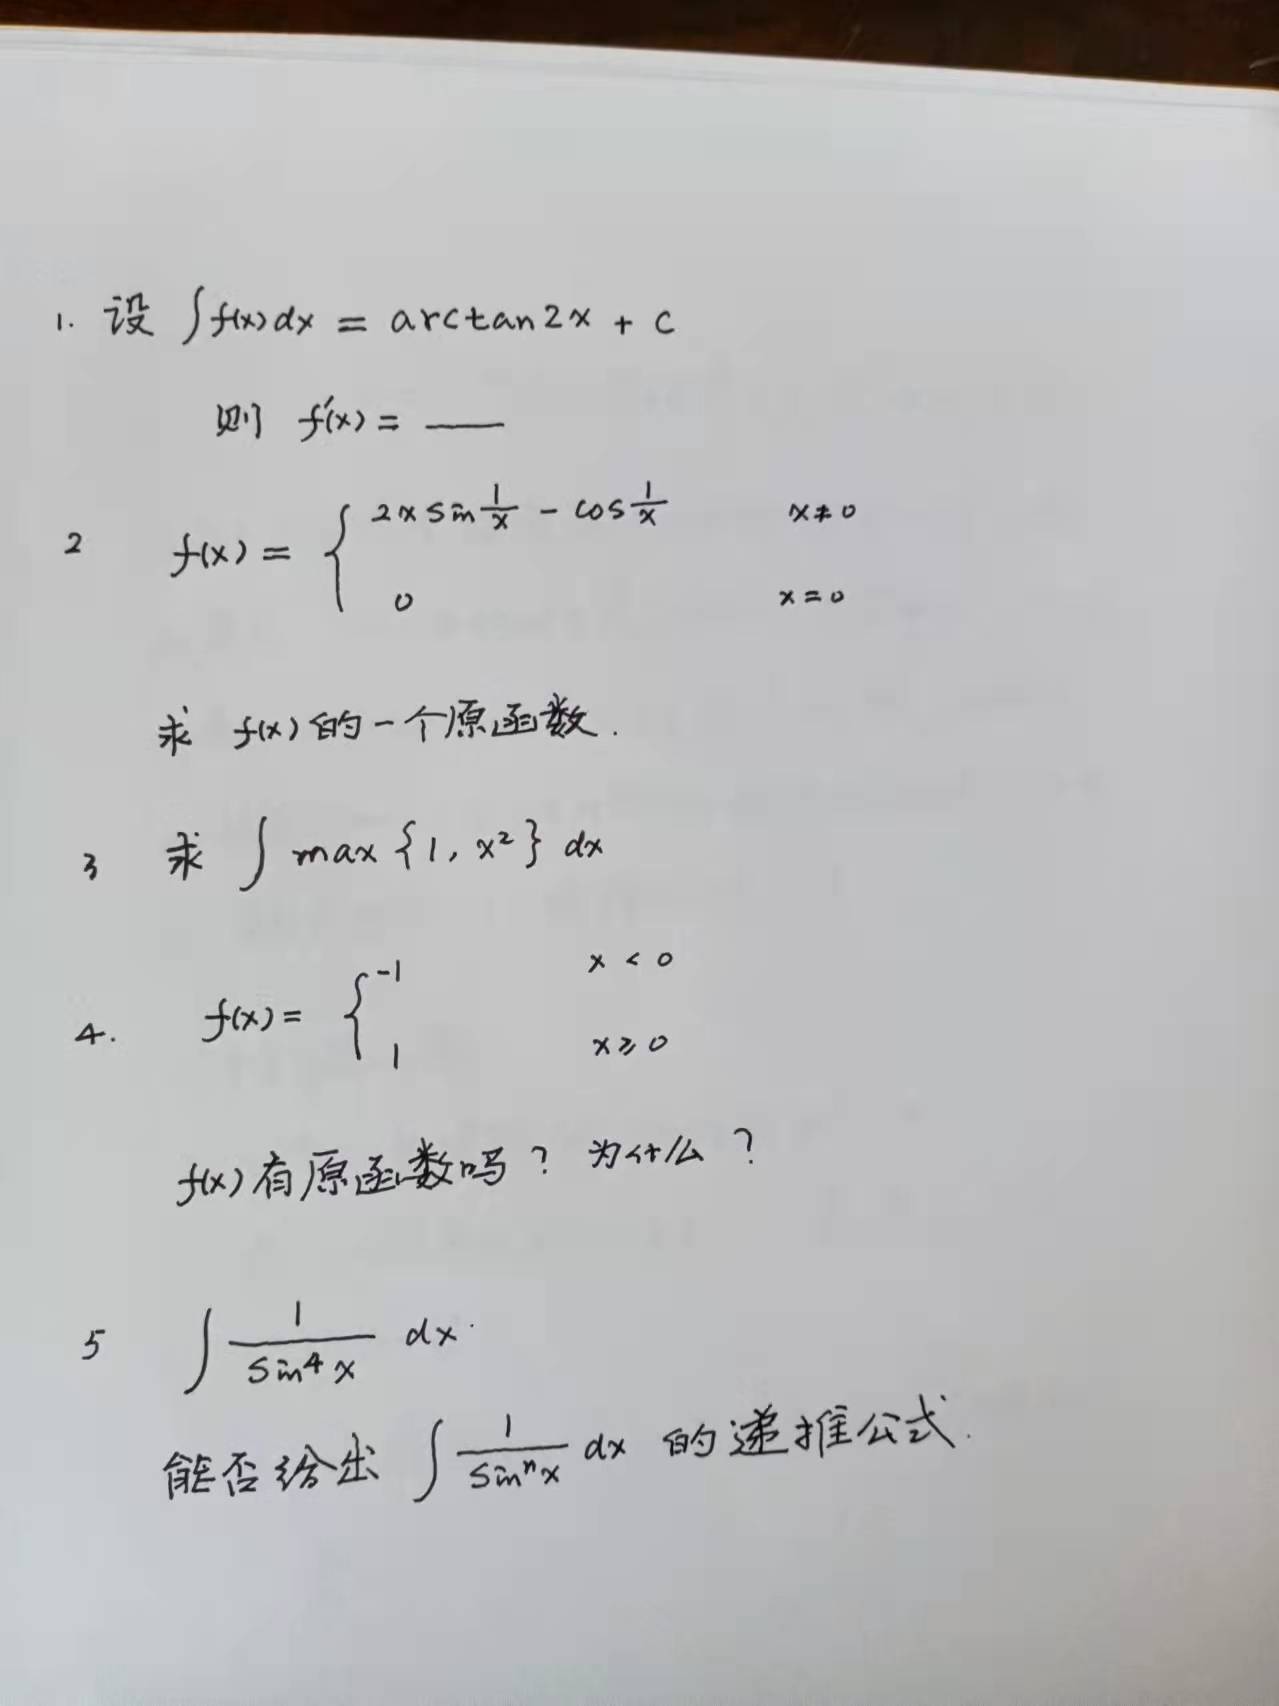 1. 设 ∫f(x)dx = arctan2x + c
则 f'(x) = ——
2 f(x) = { 2x sin 1/x - cos 1/x x≠0
0 x=0
求 f(x) 的一个原函数.
3 求 ∫ max {1, x²} dx
4. f(x) = { -1 x < 0
1 x ≥ 0
f(x) 有原函数吗? 为什么?
5 ∫ 1/sin⁴x dx.
能否给出 ∫ 1/sinⁿx dx 的递推公式.